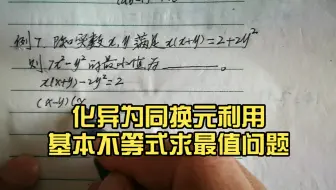 例7. 已知实数x,y满足x(x+y)=2+2y²
则7x²-y²的最小值为______.
x(x+y)-2y²=2
(x-y)(x
化异为同换元利用
基本不等式求最值问题